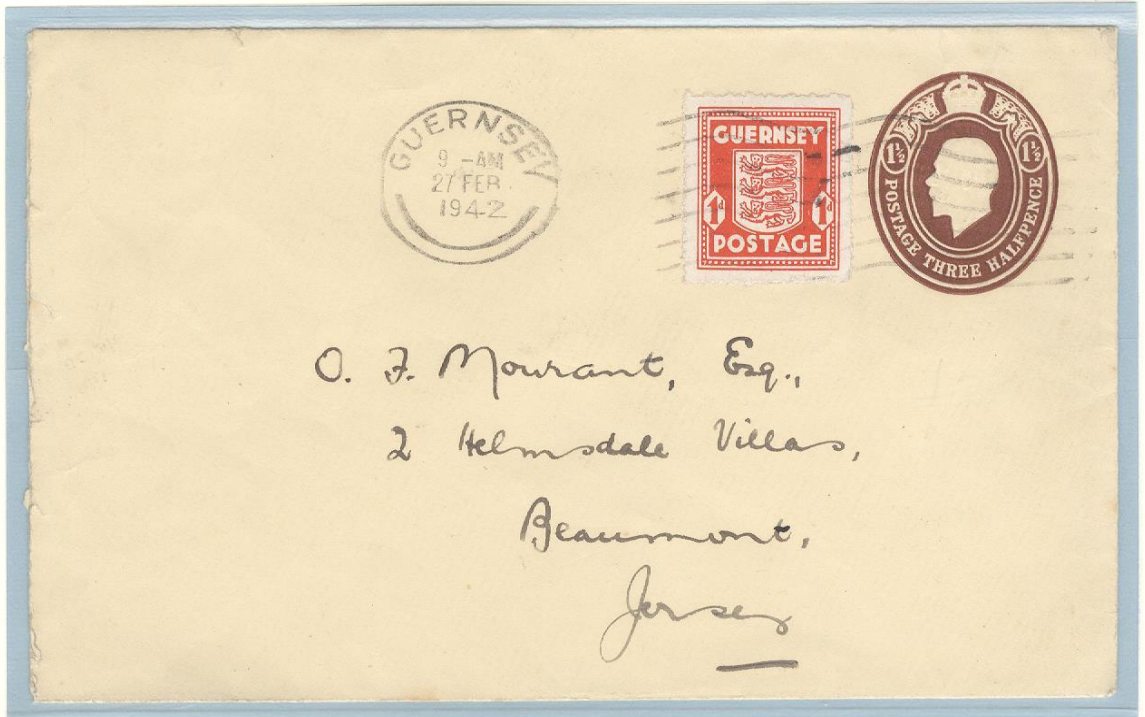 GUERNSEY
9 -AM
27 FEB
1942
GUERNSEY
1d 1d
POSTAGE
1½ 1½
POSTAGE THREE HALFPENCE
O. F. Mourant, Esq.,
2 Helmsdale Villas,
Beaumont,
Jersey